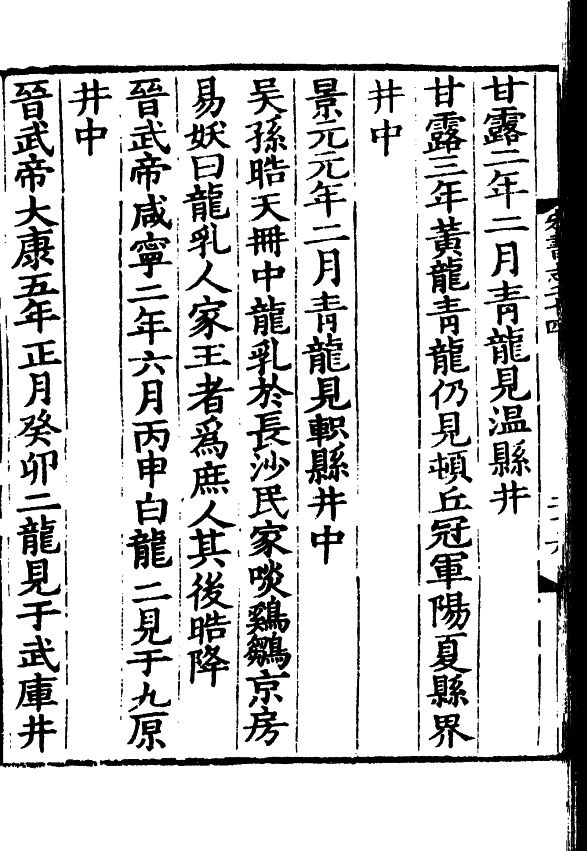 甘露二年二月青龍見温縣井
甘露三年黃龍青龍仍見頓丘冠軍陽夏縣界
井中
景元元年二月青龍見軹縣井中
吴孫晧天冊中龍乳於長沙民家啖鷄鶵京房
易妖曰龍乳人家王者爲庶人其後晧降
晉武帝咸寧二年六月丙申白龍二見于九原
井中
晉武帝大康五年正月癸卯二龍見于武庫井